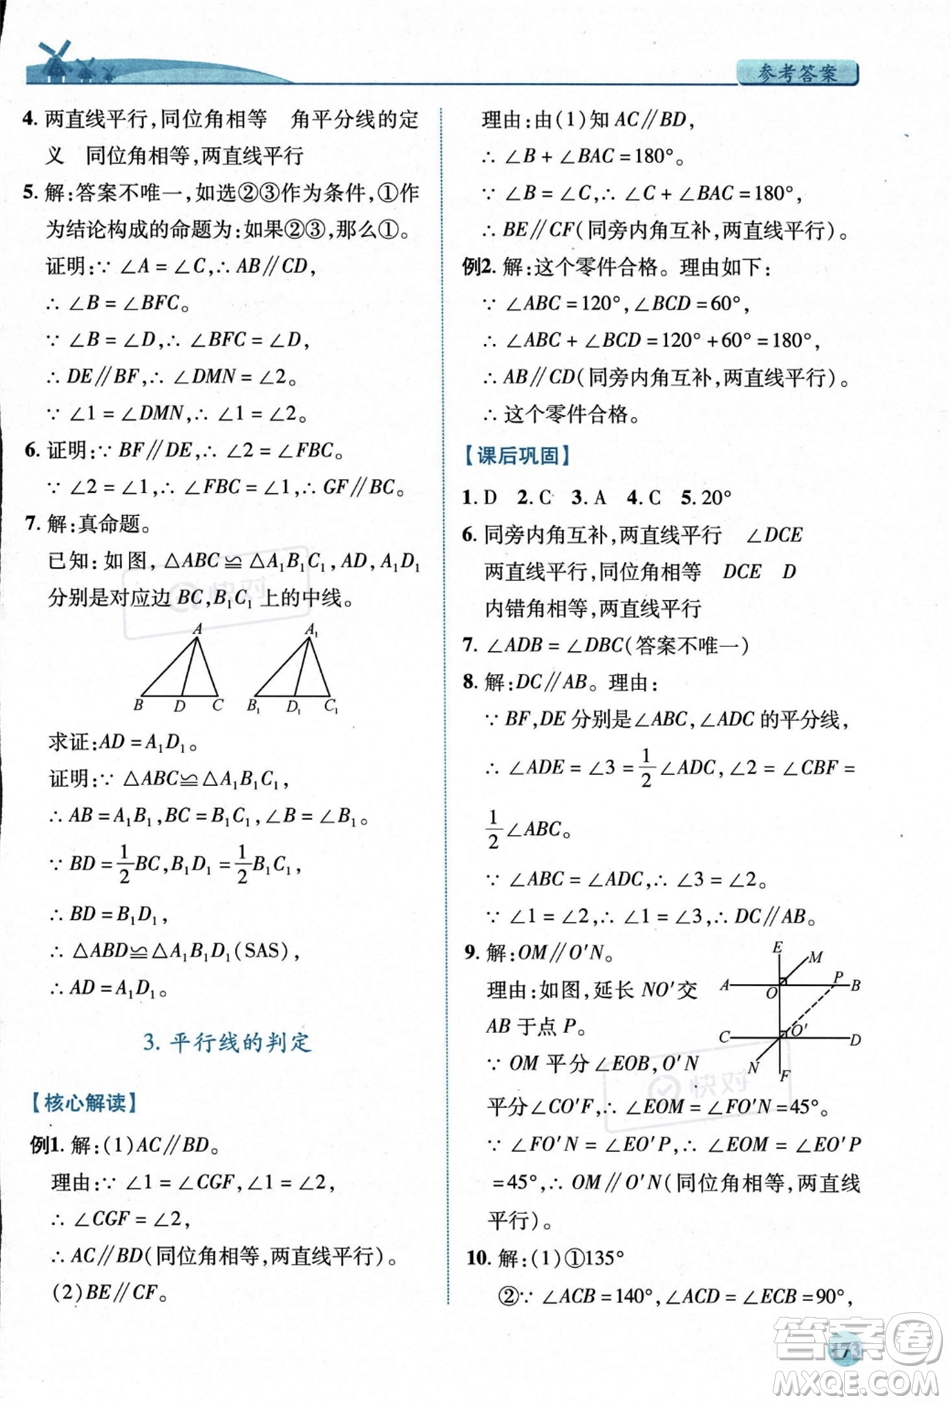 参考答案
4. 两直线平行,同位角相等　角平分线的定
义　同位角相等,两直线平行
5. 解:答案不唯一,如选②③作为条件,①作
为结论构成的命题为:如果②③,那么①。
证明:∵ ∠A = ∠C,∴ AB∥CD,
∴ ∠B = ∠BFC。
∵ ∠B = ∠D,∴ ∠BFC = ∠D,
∴ DE∥BF,∴ ∠DMN = ∠2。
∵ ∠1 = ∠DMN,∴ ∠1 = ∠2。
6. 证明:∵ BF∥DE,∴ ∠2 = ∠FBC。
∵ ∠2 = ∠1,∴ ∠FBC = ∠1,∴ GF∥BC。
7. 解:真命题。
已知:如图,△ABC≌△A₁B₁C₁,AD,A₁D₁
分别是对应边 BC,B₁C₁ 上的中线。
A A₁
B D C B₁ D₁ C₁
求证:AD = A₁D₁。
证明:∵ △ABC≌△A₁B₁C₁,
∴ AB = A₁B₁,BC = B₁C₁,∠B = ∠B₁。
∵ BD = 1/2 BC,B₁D₁ = 1/2 B₁C₁,
∴ BD = B₁D₁,
∴ △ABD≌△A₁B₁D₁(SAS),
∴ AD = A₁D₁。
3. 平行线的判定
【核心解读】
例1. 解:(1)AC∥BD。
理由:∵ ∠1 = ∠CGF,∠1 = ∠2,
∴ ∠CGF = ∠2,
∴ AC∥BD(同位角相等,两直线平行)。
(2)BE∥CF。
理由:由(1)知 AC∥BD,
∴ ∠B + ∠BAC = 180°。
∵ ∠B = ∠C,∴ ∠C + ∠BAC = 180°,
∴ BE∥CF(同旁内角互补,两直线平行)。
例2. 解:这个零件合格。理由如下:
∵ ∠ABC = 120°,∠BCD = 60°,
∴ ∠ABC + ∠BCD = 120° + 60° = 180°,
∴ AB∥CD(同旁内角互补,两直线平行),
∴ 这个零件合格。
【课后巩固】
1. D　2. C　3. A　4. C　5. 20°
6. 同旁内角互补,两直线平行　∠DCE
两直线平行,同位角相等　DCE　D
内错角相等,两直线平行
7. ∠ADB = ∠DBC(答案不唯一)
8. 解:DC∥AB。理由:
∵ BF,DE 分别是∠ABC,∠ADC 的平分线,
∴ ∠ADE = ∠3 = 1/2 ∠ADC,∠2 = ∠CBF =
1/2 ∠ABC。
∵ ∠ABC = ∠ADC,∴ ∠3 = ∠2。
∵ ∠1 = ∠2,∴ ∠1 = ∠3,∴ DC∥AB。
9. 解:OM∥O′N。
理由:如图,延长 NO′交
AB 于点 P。
∵ OM 平分∠EOB,O′N
平分∠CO′F,∴ ∠EOM = ∠FO′N = 45°。
∵ ∠FO′N = ∠EO′P,∴ ∠EOM = ∠EO′P
= 45°,∴ OM∥O′N(同位角相等,两直线
平行)。
E M
A O P B
C O′ D
N F
10. 解:(1)①135°
②∵ ∠ACB = 140°,∠ACD = ∠ECB = 90°,
173
快对
快对
答案圈
MXQE.COM